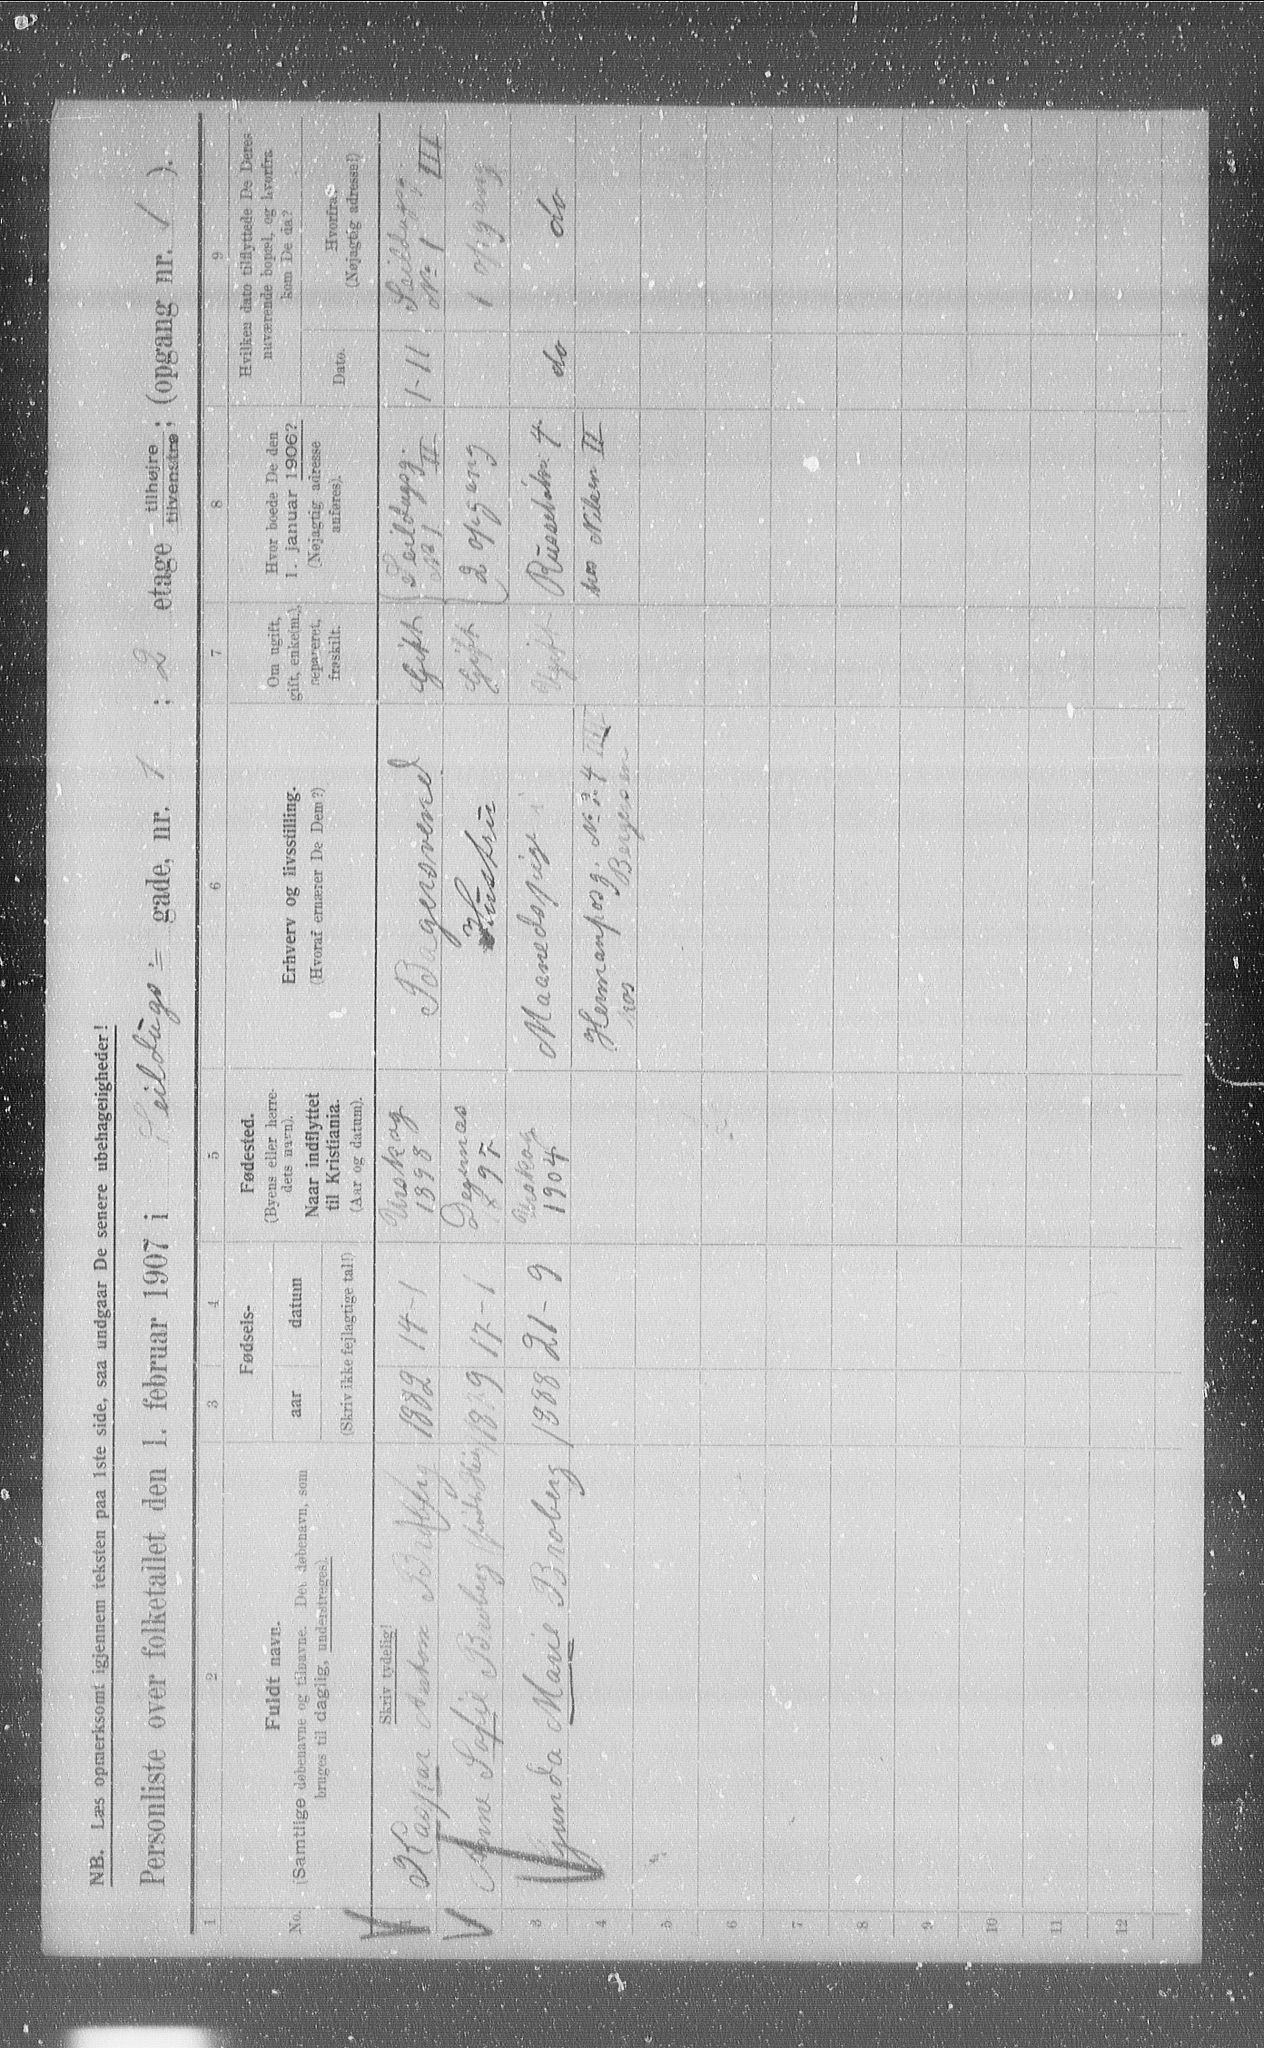 NB. Læs opmerksomt igjennem teksten paa 1ste side, saa undgaar De senere ubehageligheder!
Personliste over folketallet den 1. februar 1907 i Seildugs= gade, nr. 1 ; 2 etage tilhøjre tilvenstre; (opgang nr. 1 ).
1 2 3 4 5 6 7 8 9
No.
Fuldt navn.
(Samtlige døbenavne og tilnavne. Det døbenavn, som
bruges til daglig, understreges).
Fødsels-
aar datum
(Skriv ikke fejlagtige tal!)
Fødested.
(Byens eller herre-
dets navn).
Naar indflyttet
til Kristiania.
(Aar og datum).
Erhverv og livsstilling.
(Hvoraf ernærer De Dem?)
Om ugift,
gift, enke(m.),
separeret,
fraskilt.
Hvor boede De den
1. januar 1906?
(Nøjagtig adresse
anføres).
Hvilken dato tilflyttede De Deres
nuværende bopæl, og hvorfra
kom De da?
Dato.
Hvorfra.
(Nøjagtig adresse!)
Skriv tydelig!
1 Kaspar 1882 14-1 Urskog Bagersvend Gift Seildugsg. 1-11 Seildugsg.
1898 No 1 II No 1 III
2 Anne Sofie Broberg 17-1 Degernes Hustru Gift 2 opgang 1 opgang
97
3 Gunda Marie Broberg 1888 21-9 Urskog Maanedspige i Ugift Russeløkv. 4 do do
1904
4 No 24 III hos Nilsen II
hos Bergersen
5
6
7
8
9
10
11
12